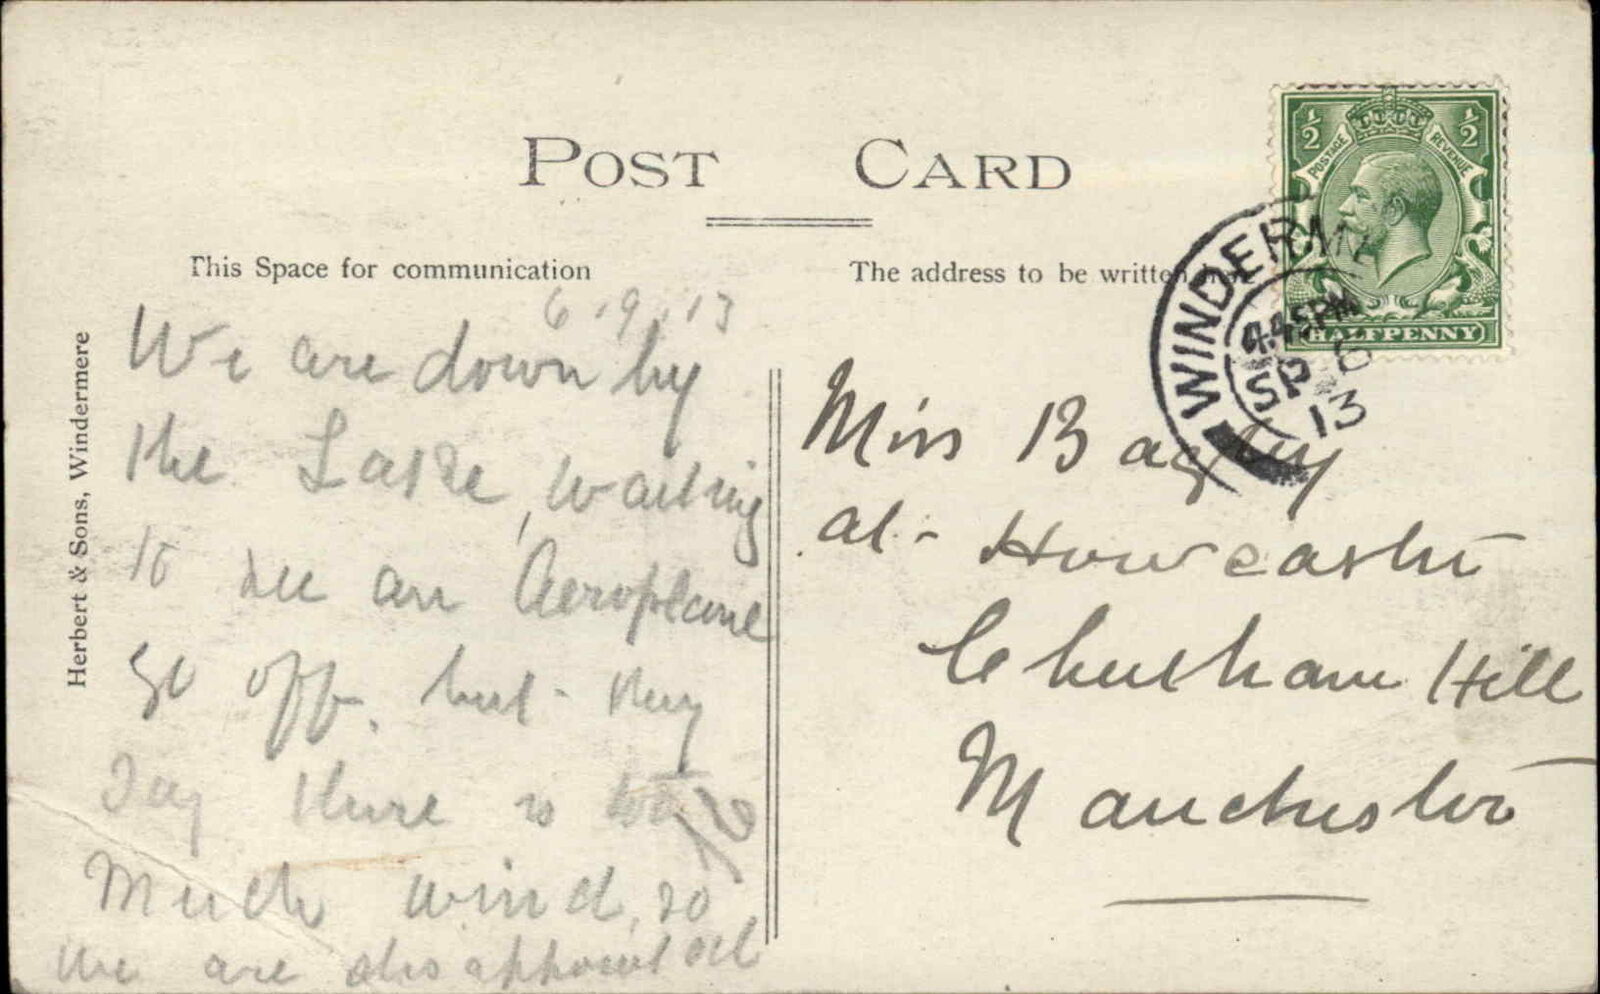 POST CARD
This Space for communication
The address to be written
Herbert & Sons, Windermere
6.9.13
We are down by
the Lake, waiting
to see an Aeroplane
go off, but they
say there is too
Much wind, so
we are disappointed
Miss Bagley
at- Howcaster
Cheetham Hill
Manchester
½ ½
POSTAGE REVENUE
HALFPENNY
WINDERMERE
4.45PM
SP 6
13